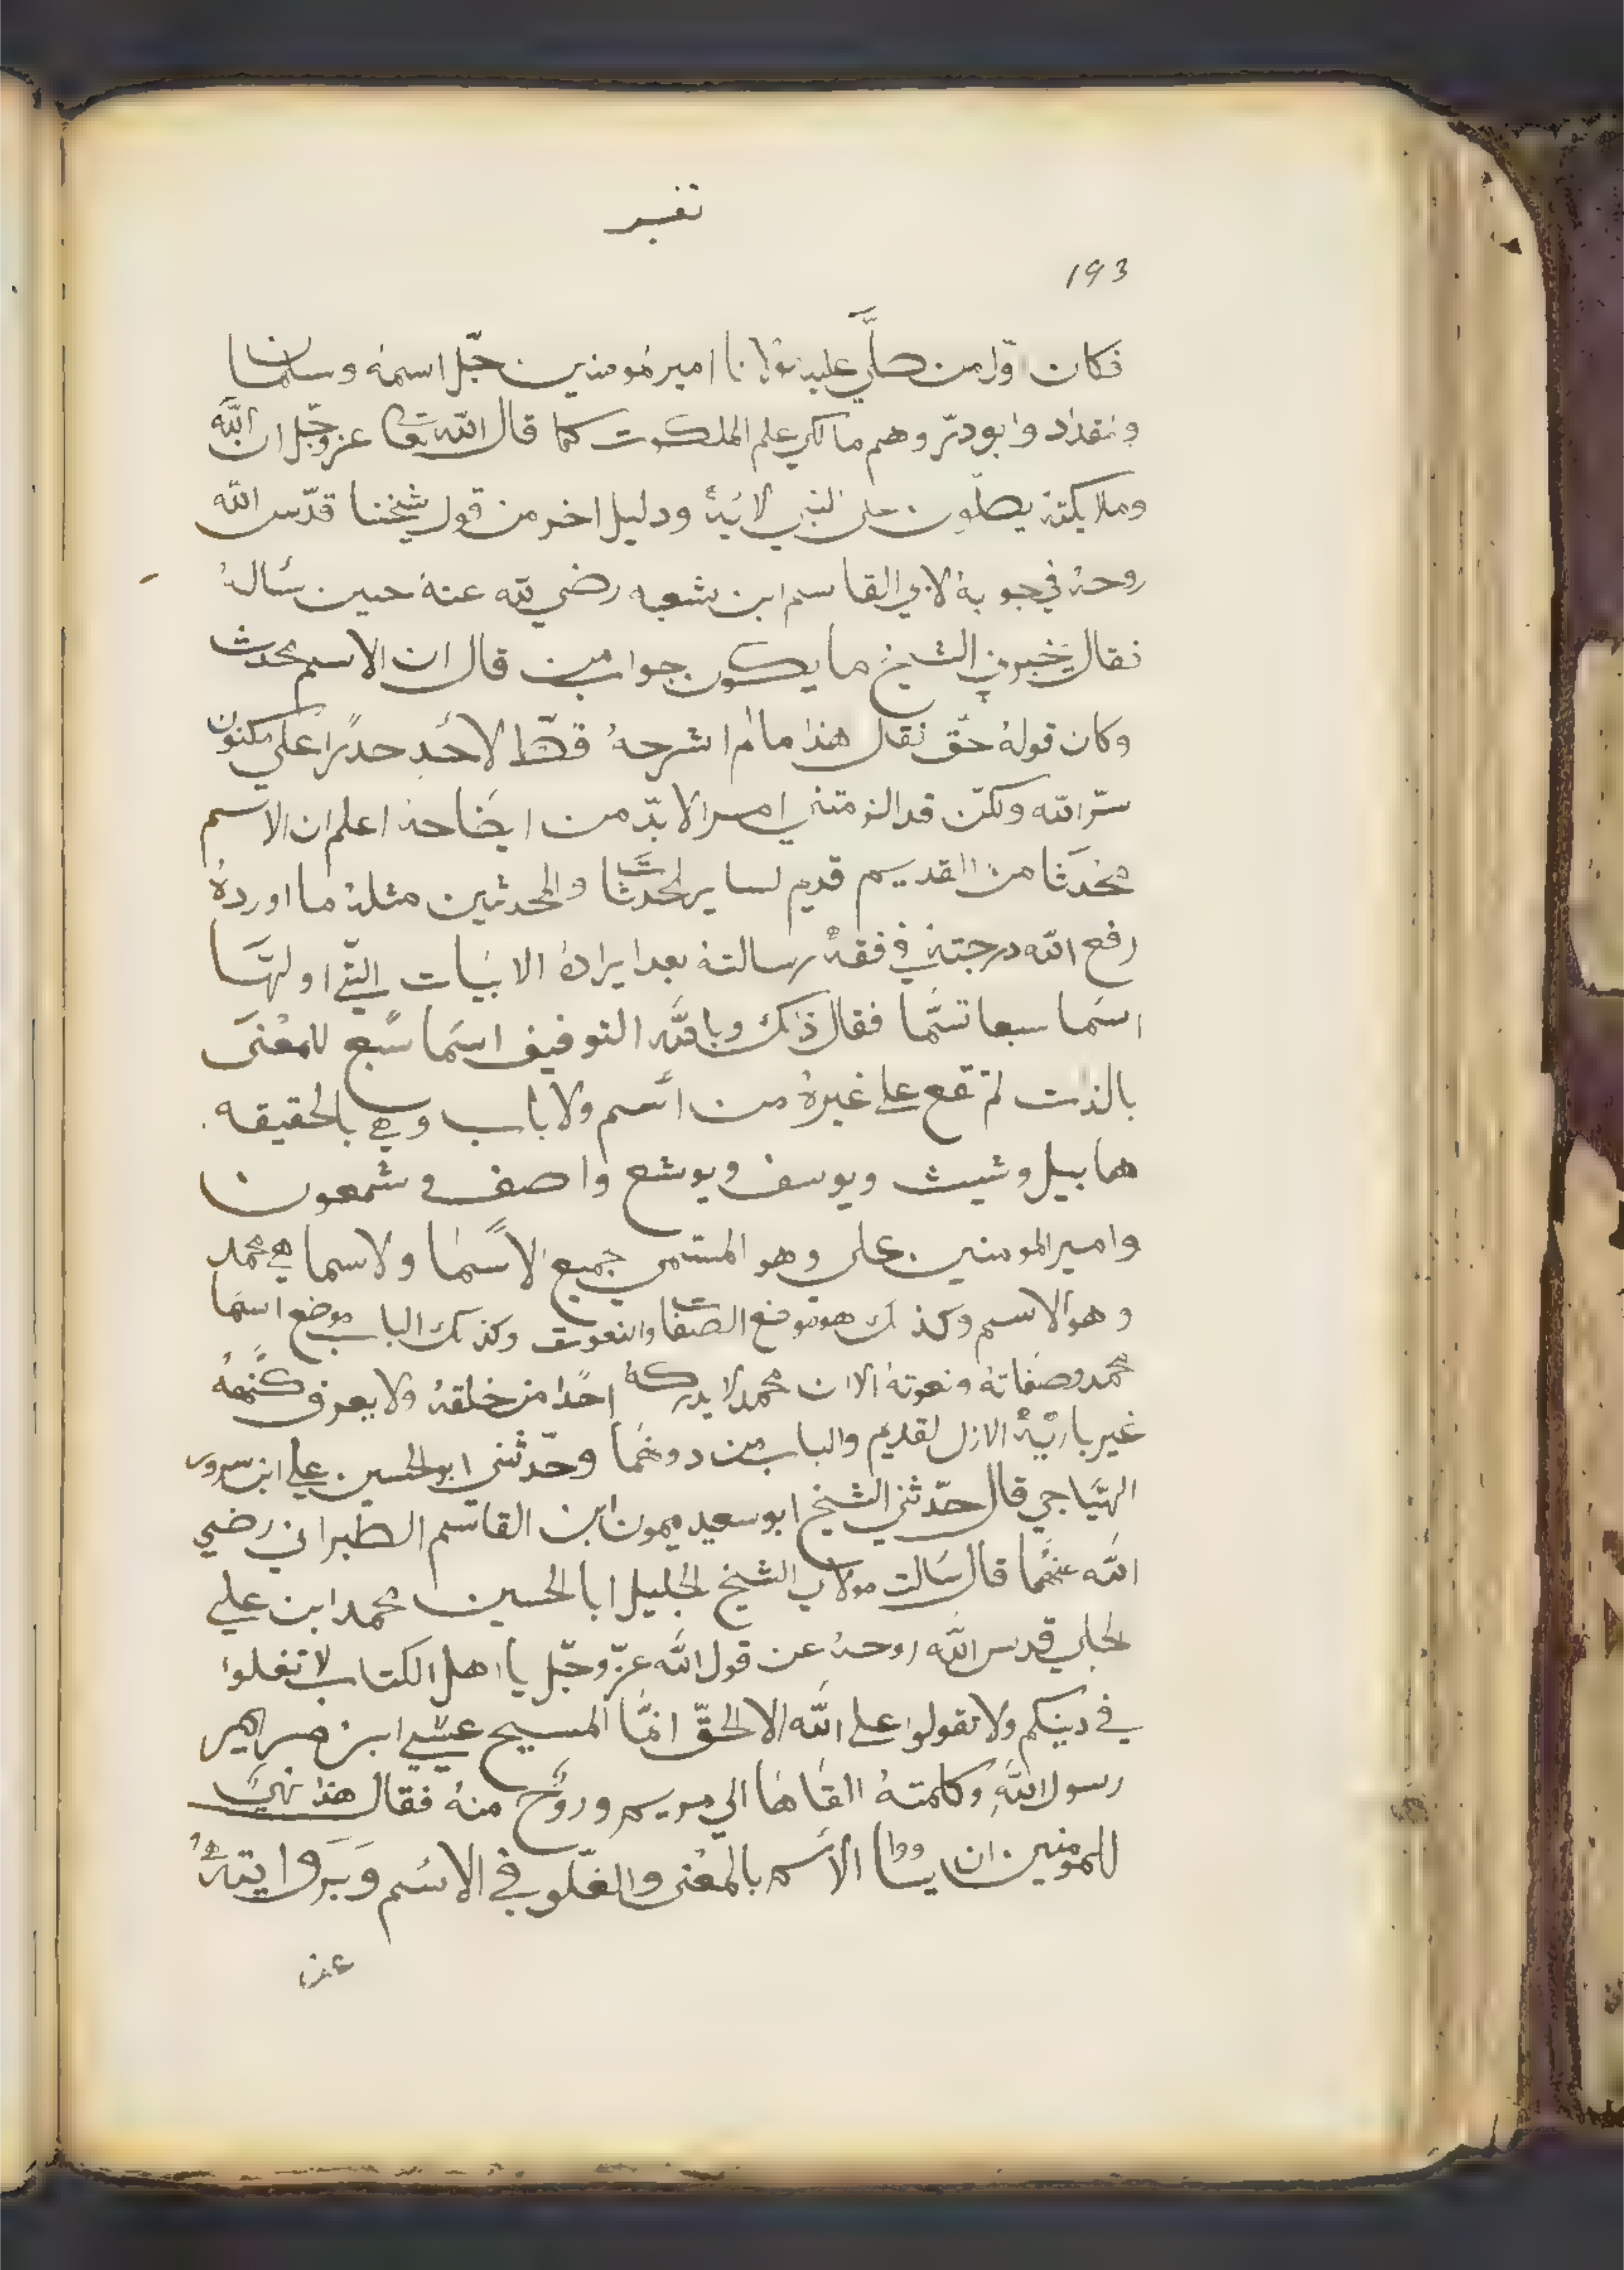 تفسير
193
فكان اوّل من صلَّي عليه مولانا امير مومنين جّل اسمهُ وسلمان
ومقداد وابو دّر وهم مالكي علم الملكوت كما قال اللّه تعا عز وجّل ان اللّه
وملايكتهُ يصلّون على النبي لايهُ ودليل اخر من قول شيخنا قدّس اللّه
روحهُ في جوبهُ لابي القاسم ابن شعبه رضي لله عنهُ حين سألهُ
فقال يخبرني الشيخ ما يكون جواب من قال ان الاسم محدث
وكان قولهُ حّق فقال هذا ما لم اشرحهُ قطّ لاحدٍ حدرًا علي مكنون
سّر اللّه ولكّن قد الزمتني امر الا بدّ من ايضاحهُ اعلم ان الاسم
محدَثا من القديم قديم لساير لمحدثات والمحدثين مثلهُ ما اوردهُ
رفع اللّه درجتهُ في فقهْ رسالتهُ بعد ايرادهُ الابيات التّي اولهَّا
اسَما سبعا تسَّما فقال ذلك وباللّه التوفيق اسَما سَّبع للمعْنَى
بالذات لم تقع علي غيرهُ من اسَم ولا باب وهي بالحقيقه
هابيل وشيث ويوسف ويوشع واصف و شمعون
وامير المومنين علي وهو المتسمي جميع الاسَمٰا ولاسما هي محمد
وهو الاسم وكذلك هو موضع الصفات والنعوت وكذلك الباب موضع اسمَا
محمد وصفاتهُ ونعوتهُ الا ان محمد لا يدركهُ احًدا من خلقهُ ولا يعرف كنَّههُ
غير باريّهُ الازل لقديم والباب من دونهما وحّدثني ابو الحسين علي ابن سرور
الهتَاجي قال حدّثني الشيخ ابو سعيد ميمون ابن القاسم الطبراني رضي
اللّه عنهُما قال سَالت مولاي الشيخ لجليل ابا الحسين محمد ابن علي
لجلي قدس اللّه روحهُ عن قول اللّه عزّ وجّل يا اهل الكتاب لا تغلوا
في دينكم ولا تقولوا علي اللّه الا لحقّ انمَّا المسيح عيسي ابن مريم
رسول اللّهِ وكلمتهُ القاهَا الي مريم وروَّح منهُ فقال هذا نهيَ
للمومنين ان يساووا الاسَم بالمعْنى والغلّو في الاسُم وَبَروايتهُ
عن